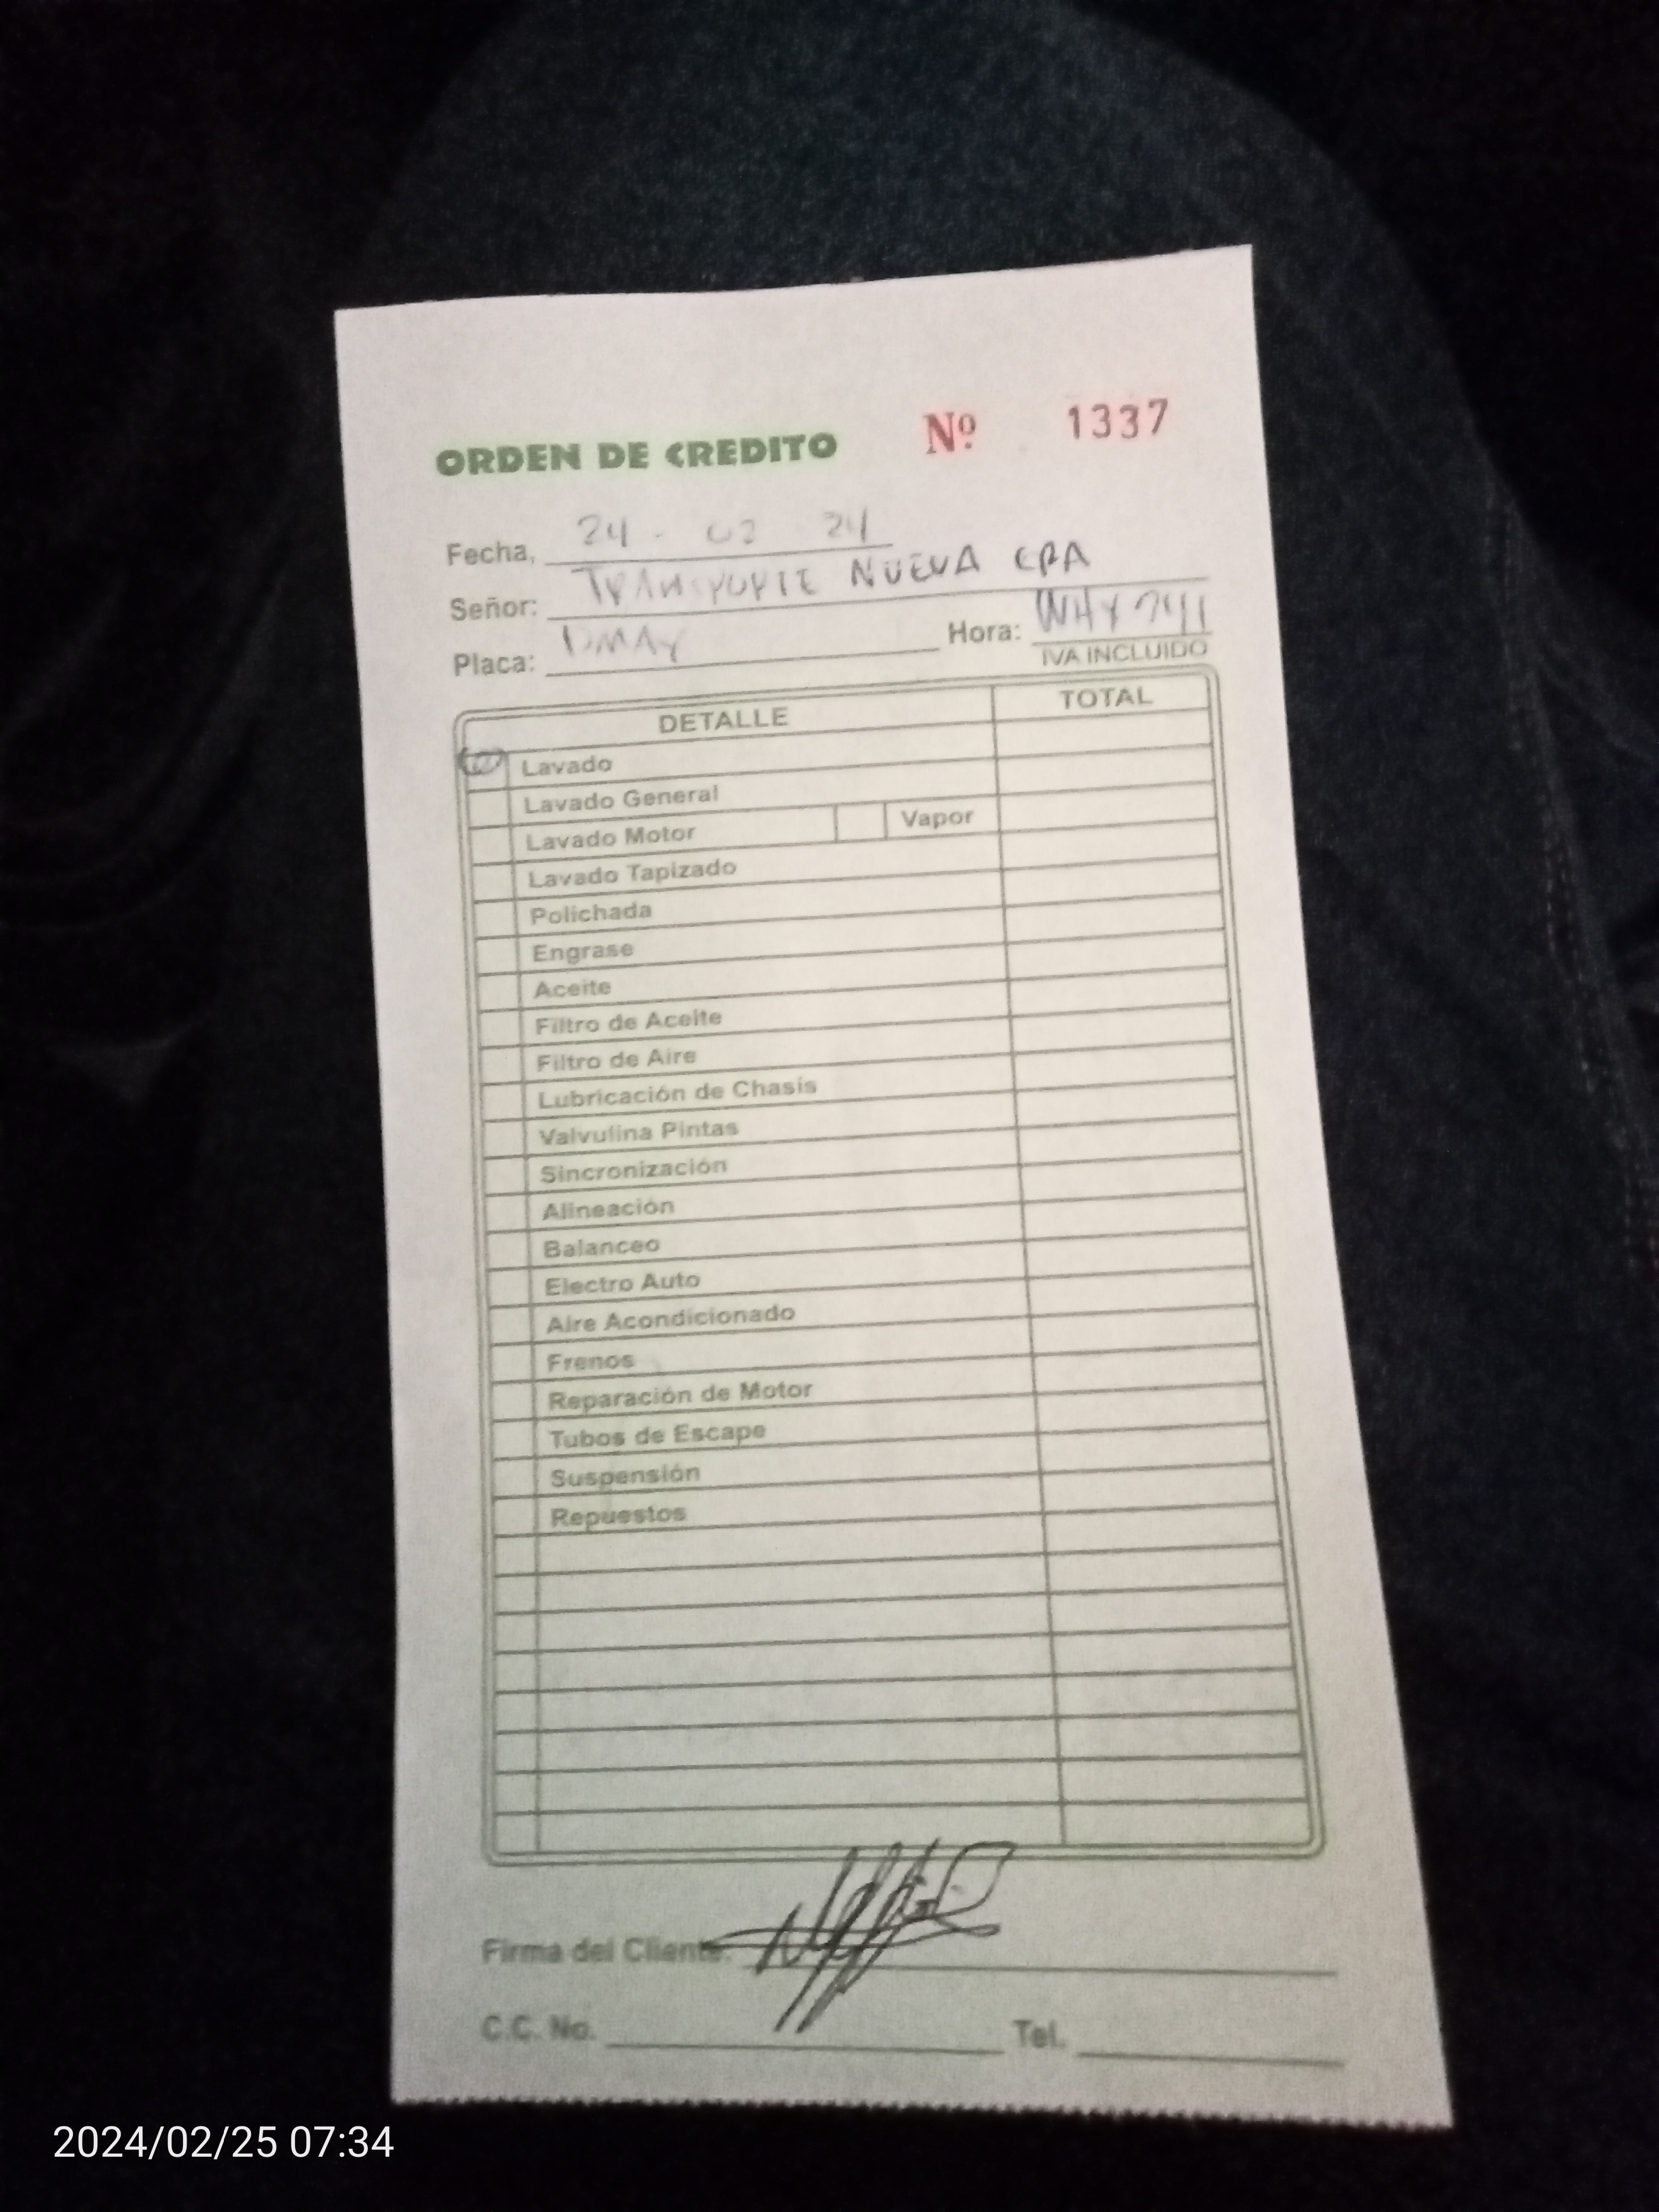 ORDEN DE CREDITO Nº 1337
Fecha, 24 - 02 24
Señor: TRANSPORTE NUEVA ERA
Placa: Hora: WHY 741
IVA INCLUIDO
DETALLE TOTAL
Lavado
Lavado General
Lavado Motor Vapor
Lavado Tapizado
Polichada
Engrase
Aceite
Filtro de Aceite
Filtro de Aire
Lubricación de Chasís
Valvulina Pintas
Sincronización
Alineación
Balanceo
Electro Auto
Aire Acondicionado
Frenos
Reparación de Motor
Tubos de Escape
Suspensión
Repuestos
Firma del Cliente:
C.C. No. Tel.
2024/02/25 07:34